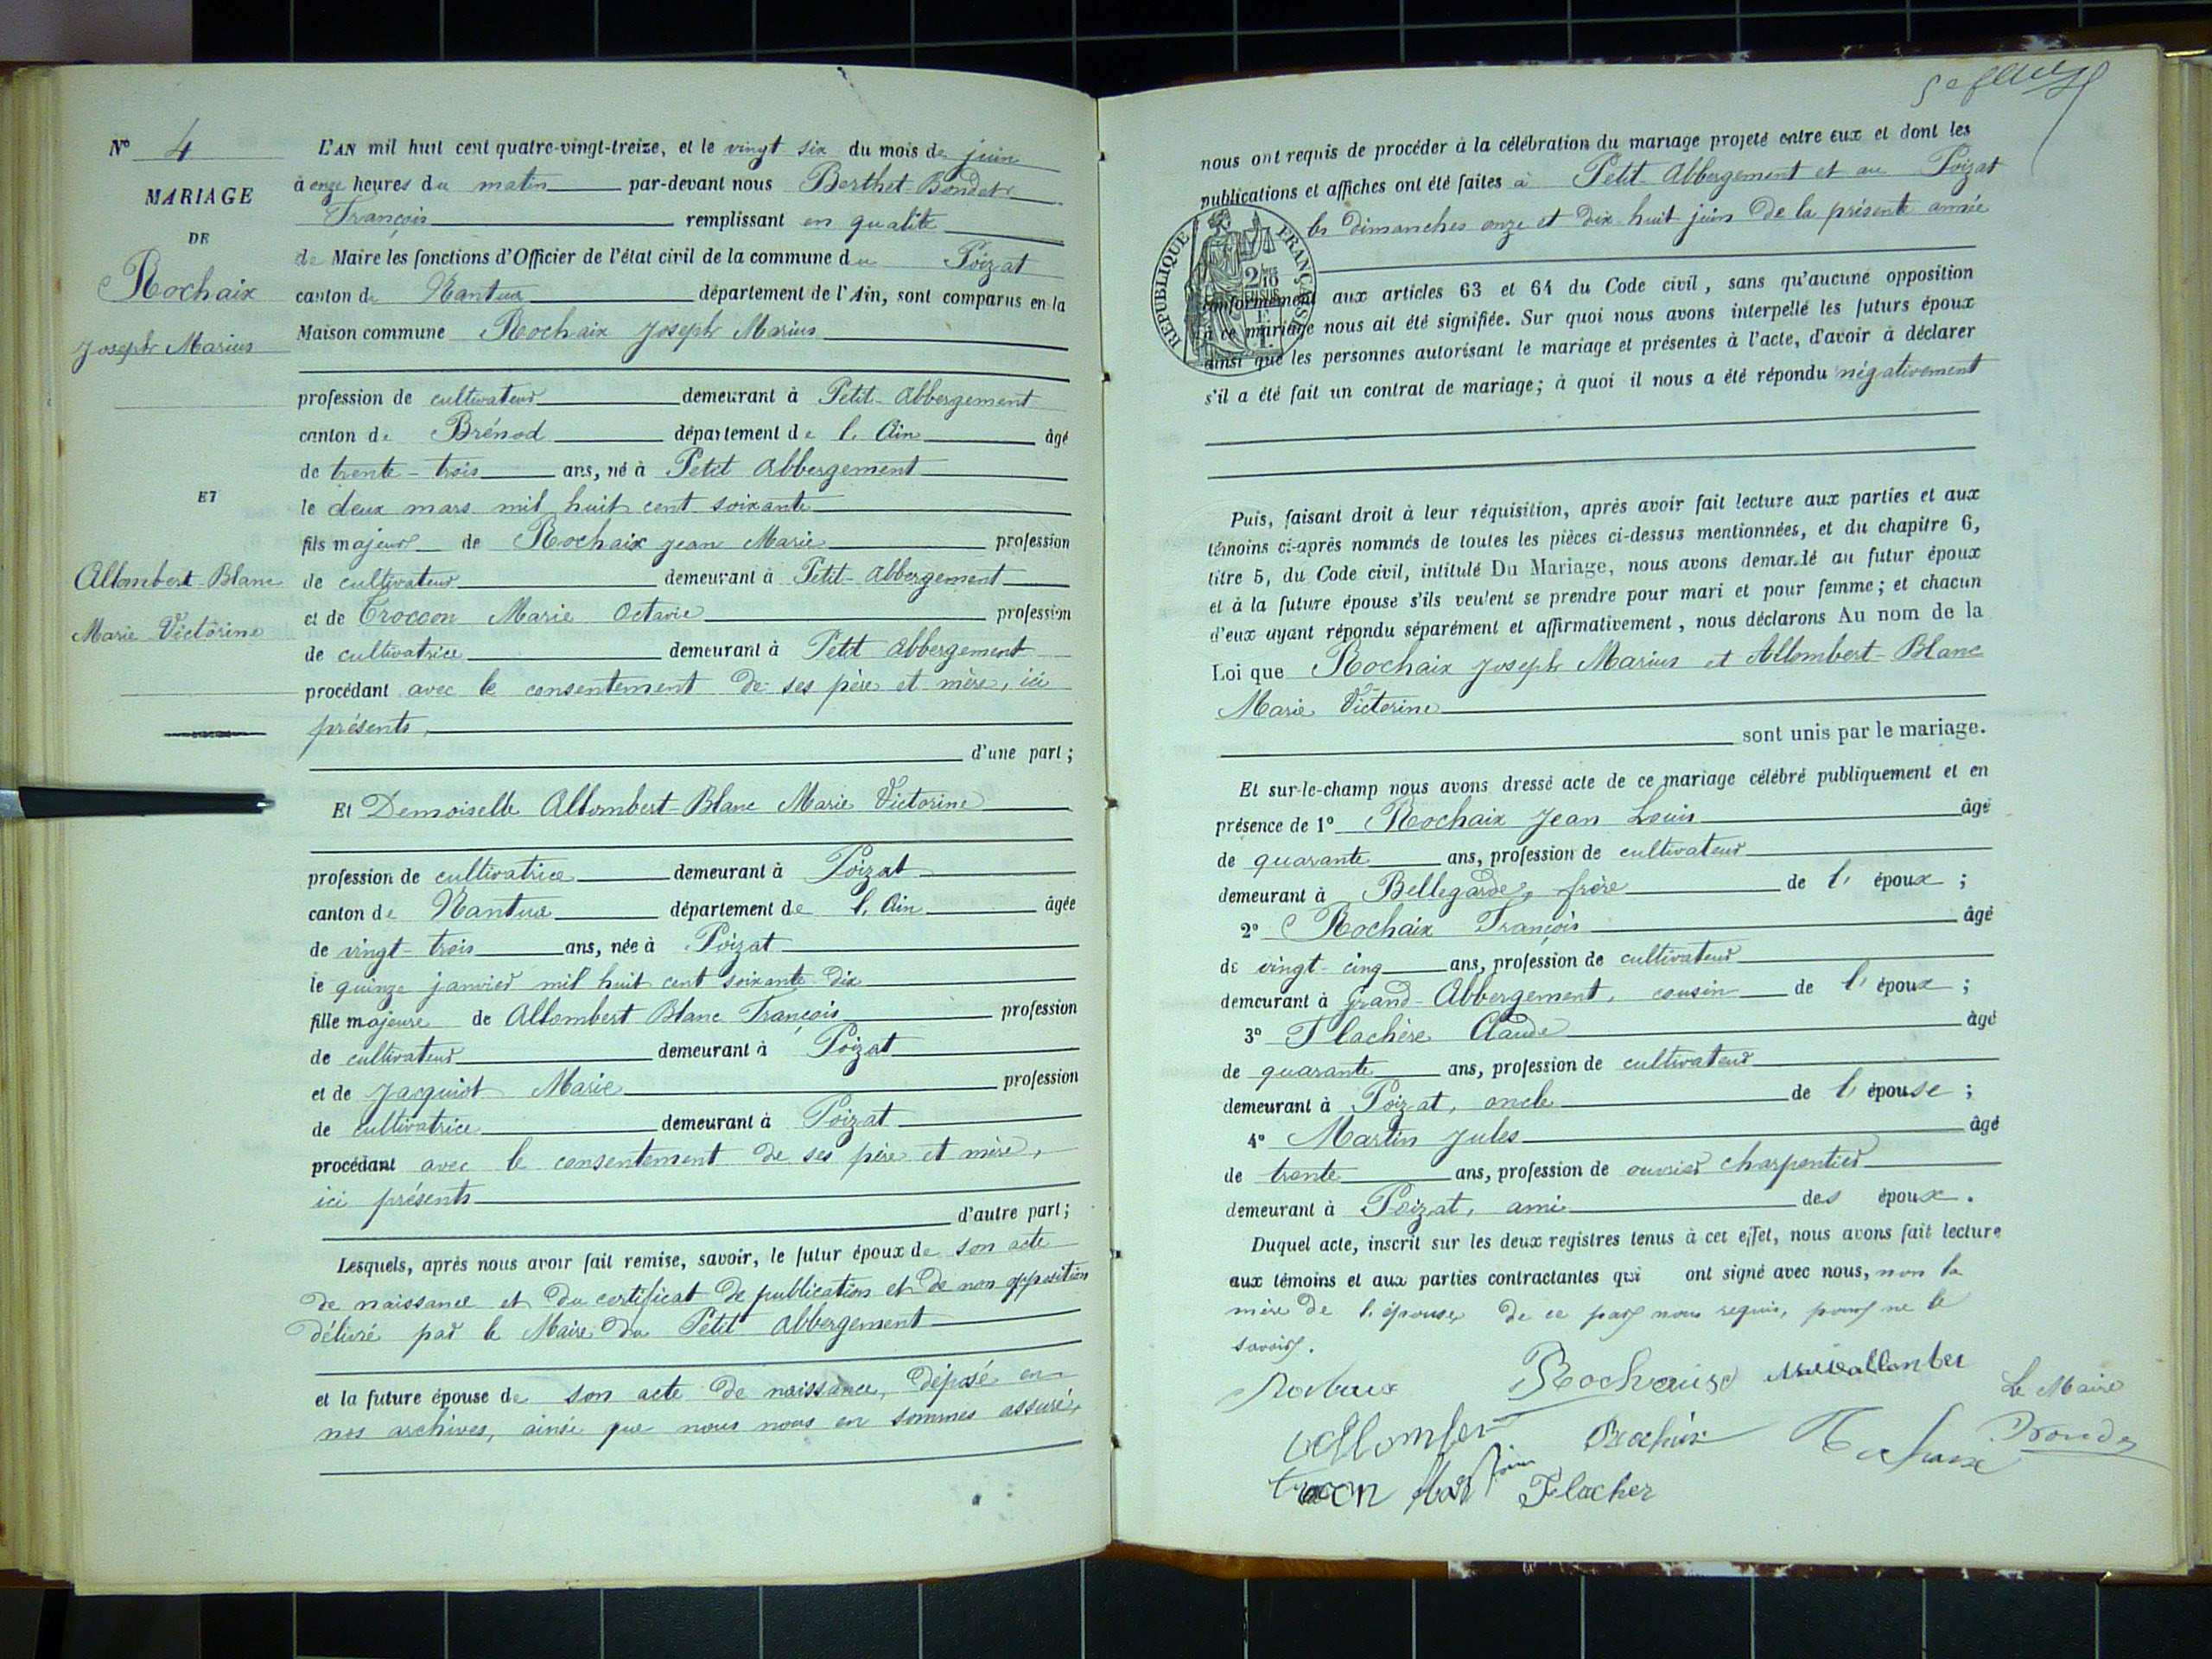 N° 4
MARIAGE
DE
Rochaix
Joseph Marius
ET
Allombert-Blanc
Marie Victorine
L'AN mil huit cent quatre-vingt-treize, et le vingt six du mois de juin
à onze heures du matin par-devant nous Berthet-Bondet
François remplissant en qualité
de Maire les fonctions d'Officier de l'état civil de la commune du Poizat
canton de Nantua département de l'Ain, sont comparus en la
Maison commune Rochaix Joseph Marius
profession de cultivateur demeurant à Petit-Abbergement
canton de Brénod département de l'Ain âgé
de trente-trois ans, né à Petit Abbergement
le deux mars mil huit cent soixante
fils majeur de Rochaix Jean Marie profession
de cultivateur demeurant à Petit-Abbergement
et de Troccon Marie Octavie profession
de cultivatrice demeurant à Petit Abbergement
procédant avec le consentement de ses père et mère, ici
présents,
d'une part;
Et Demoiselle Allombert-Blanc Marie Victorine
profession de cultivatrice demeurant à Poizat
canton de Nantua département de l'Ain âgée
de vingt-trois ans, née à Poizat
le quinze janvier mil huit cent soixante-dix
fille majeure de Allombert Blanc François profession
de cultivateur demeurant à Poizat
et de Jacquiot Marie profession
de cultivatrice demeurant à Poizat
procédant avec le consentement de ses père et mère,
ici présents
d'autre part;
Lesquels, après nous avoir fait remise, savoir, le futur époux de son acte
de naissance et du certificat de publication et de non opposition
délivré par le Maire du Petit Abbergement
et la future épouse de son acte de naissance, déposé en
nos archives, ainsi que nous nous en sommes assuré,
nous ont requis de procéder à la célébration du mariage projeté entre eux et dont les
publications et affiches ont été faites à Petit-Abbergement et au Poizat
les dimanches onze et dix huit juin de la présente année
RÉPUBLIQUE FRANÇAISE
conformément aux articles 63 et 64 du Code civil, sans qu'aucune opposition
à ce mariage nous ait été signifiée. Sur quoi nous avons interpellé les futurs époux
ainsi que les personnes autorisant le mariage et présentes à l'acte, d'avoir à déclarer
s'il a été fait un contrat de mariage; à quoi il nous a été répondu négativement
Puis, faisant droit à leur réquisition, après avoir fait lecture aux parties et aux
témoins ci-après nommés de toutes les pièces ci-dessus mentionnées, et du chapitre 6,
titre 5, du Code civil, intitulé Du Mariage, nous avons demandé au futur époux
et à la future épouse s'ils veulent se prendre pour mari et pour femme; et chacun
d'eux ayant répondu séparément et affirmativement, nous déclarons Au nom de la
Loi que Rochaix Joseph Marius et Allombert-Blanc
Marie Victorine
sont unis par le mariage.
Et sur-le-champ nous avons dressé acte de ce mariage célébré publiquement et en
présence de 1° Rochaix Jean Louis âgé
de quarante ans, profession de cultivateur
demeurant à Bellegarde, frère de l'époux;
2° Rochaix François âgé
de vingt-cinq ans, profession de cultivateur
demeurant à Grand-Abbergement, cousin de l'époux;
3° Flachère Claude âgé
de quarante ans, profession de cultivateur
demeurant à Poizat, oncle de l'épouse;
4° Martin Jules âgé
de trente ans, profession de ouvrier charpentier
demeurant à Poizat, ami des époux.
Duquel acte, inscrit sur les deux registres tenus à cet effet, nous avons fait lecture
aux témoins et aux parties contractantes qui ont signé avec nous, non la
mère de l'épouse, de ce par nous requis, pour ne le
savoir.
Le Maire
Flacher